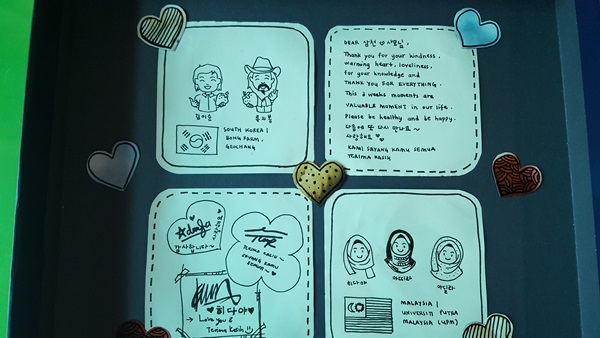 SOUTH KOREA |
BONG FARM,
GEOCHANG
DEAR 상천 ♡ 사모님,
Thank you for your kindness,
warming heart, loveliness,
for your knowledge and
THANK YOU FOR EVERYTHING.
This 2 weeks moments are
VALUABLE MOMENT in our life.
Please be healthy and be happy.
다음에 또 다시 만나요 ~
사랑해요 ♡
KAMI SAYANG KAMU SEMUA
TERIMA KASIH
감사합니다~
TERIMA KASIH ~
SAYANG KAMU
SEMUA ~
♥히다야♥
→ Love you &
Terima Kasih !!
히다야
아딜라
MALAYSIA |
UNIVERSITI PUTRA
MALAYSIA (UPM)